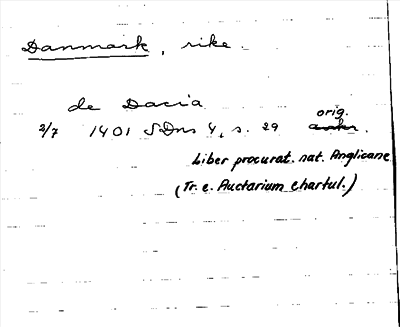 Danmark, rike.
de Dacia
orig.
2/7 1401 SDns 4, s. 29
Liber procurat. nat. Anglicane
(Tr. e. Auctarium chartul.)